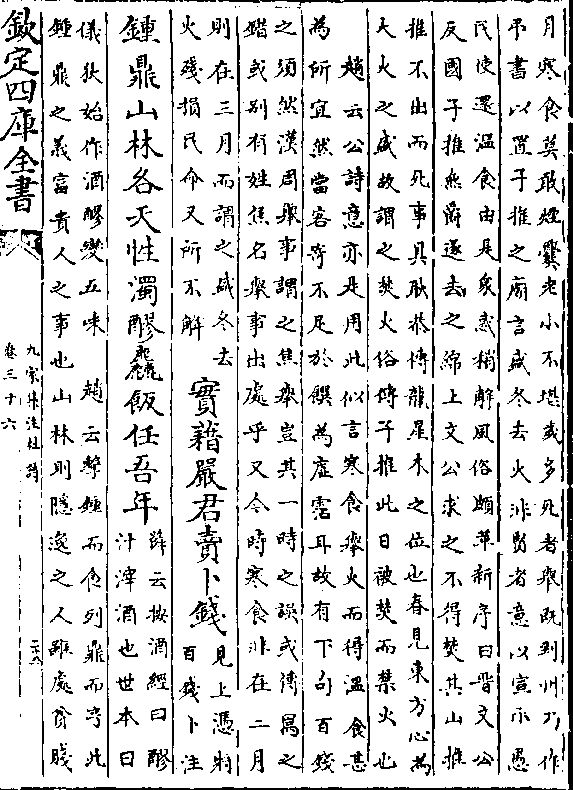 月寒食莫敢煙爨老小不堪歲多死者舉既到州乃作
弔書以置子推之廟言盛冬去火非賢者意以宣示愚
民使還溫食由是衆惑稍解風俗頗革新序曰晋文公
反國子推無爵遂去之綿上文公求之不得焚其山推
推不出而死事具耿恭傳龍星木之位也春見東方心為
大火之盛故謂之焚火俗傳子推此日被焚而禁火也
趙云公詩意亦是用此似言寒食舉火而得溫食甚
為所宜然當客寄不足於饌為虛霑耳故有下句百錢
之須然漢周舉事謂之焦舉豈其一時之誤或傳寫之
錯或别有姓焦名舉事出處乎又今時寒食非在二月
則在三月而謂之盛冬去
火殘損民命又所不解
實藉嚴君賣卜錢
見上憑將
百錢卜注
鍾鼎山林各天性濁醪麤飯任吾年
薛云按酒經曰醪
汁滓酒也世本曰
儀狄始作酒醪變五味
趙云擊鍾而食列鼎而烹此
鍾鼎之義富貴人之事也山林則隱逸之人雖處貧賤
欽定四庫全書
九家集注杜詩
卷三十六